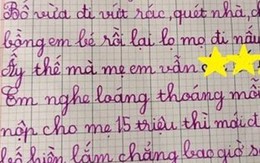 Bố vừa đi vứt rác, quét nhà,
bồng em bé rồi lại lọ mọ đi nấu
Ấy thế mà mẹ em vẫn
Em nghe loáng thoáng mỗi
nộp cho mẹ 15 triệu thì mới
bố hiền lắm chẳng bao giờ